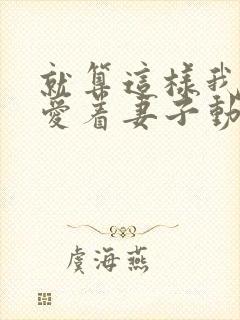 就算這樣我
愛着妻子動
虞海燕